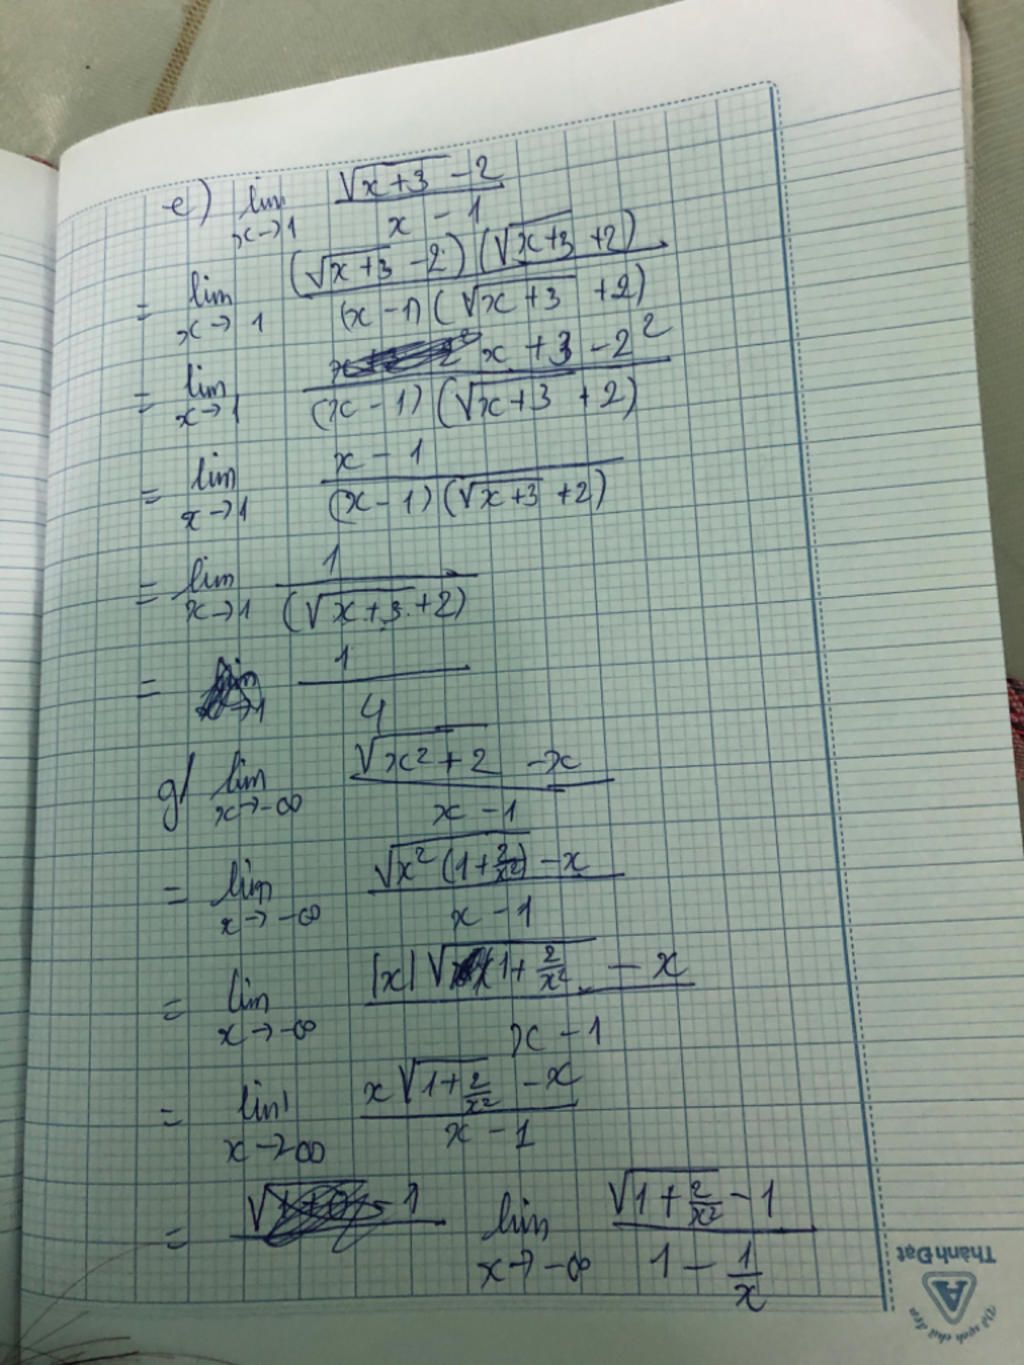 e) lim x→1 (√(x+3) - 2)/(x - 1)
= lim x→1 ((√(x+3) - 2)(√(x+3) + 2))/((x - 1)(√(x+3) + 2))
= lim x→1 (x + 3 - 2²)/((x - 1)(√(x+3) + 2))
= lim x→1 (x - 1)/((x - 1)(√(x+3) + 2))
= lim x→1 1/(√(x+3) + 2)
= 1/4
g/ lim x→-∞ (√(x²+2) - x)/(x - 1)
= lim x→-∞ (√(x²(1+2/x²)) - x)/(x - 1)
= lim x→-∞ (|x|√(1+2/x²) - x)/(x - 1)
= lim x→∞ (x√(1+2/x²) - x)/(x - 1)
= lim x→-∞ (√(1+2/x²) - 1)/(1 - 1/x)
Thành Đạt
A